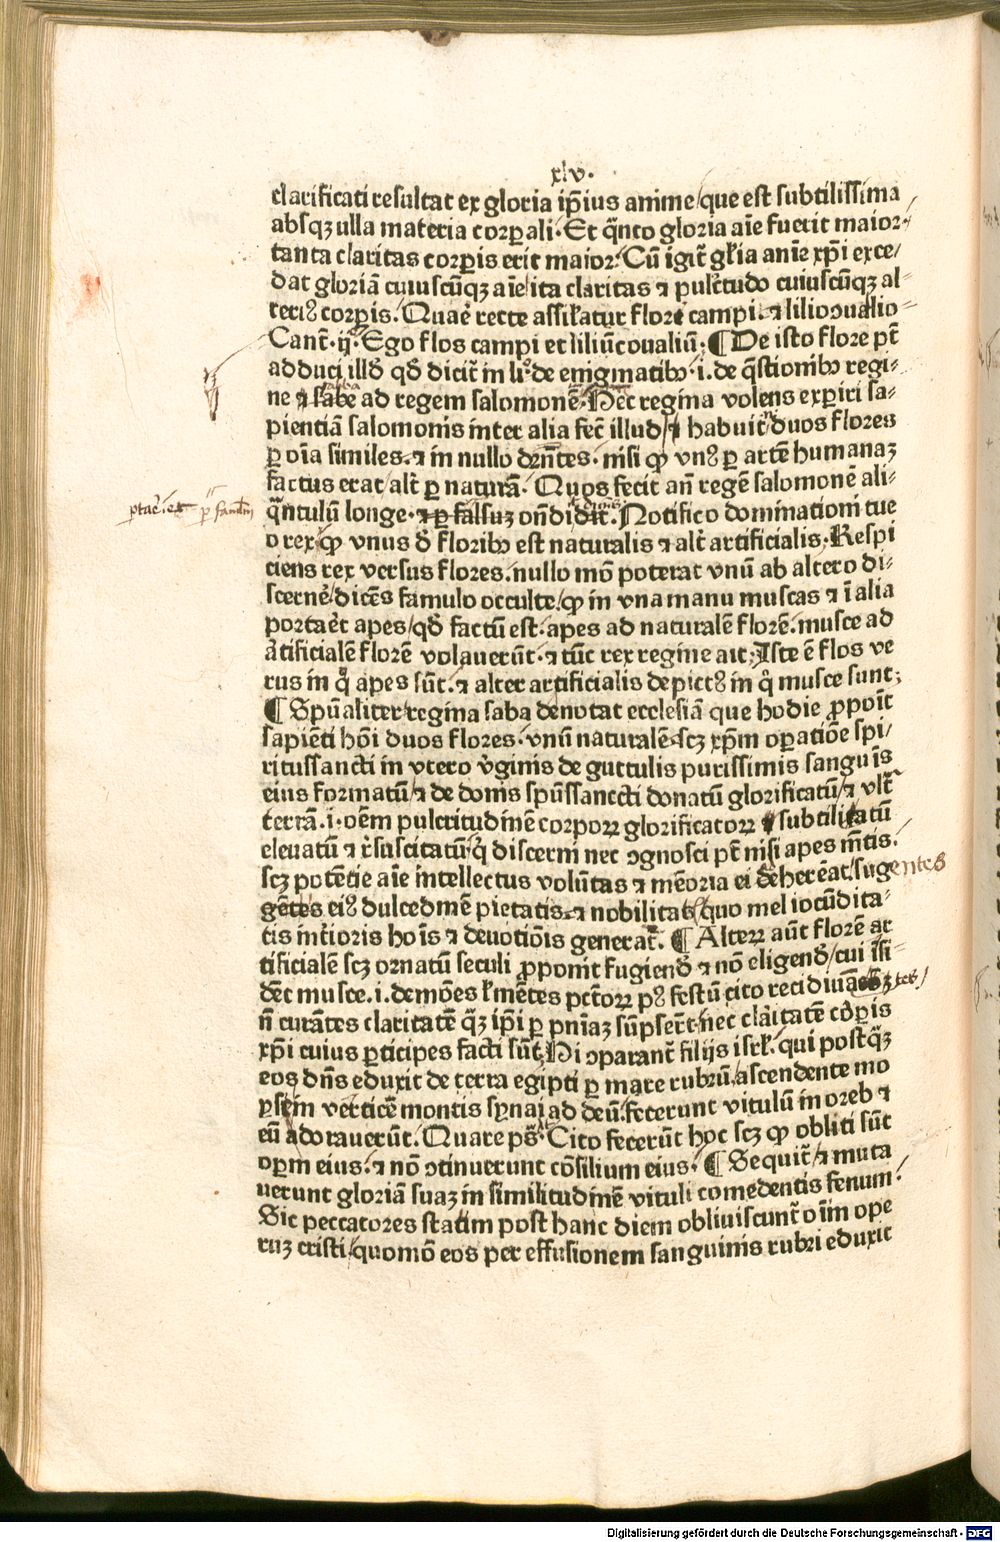 xlv.
clarificati resultat ex gloria ip̄ius anime/que est subtilissima
absqꝫ ulla materia corꝑali. Et q̄nto gloria aīe fuerit maior
tanta claritas corꝑis erit maior. Cū igit̄ gl̄ia anīe xp̄i exce/
dat gloriā cuiuscūqꝫ aīe/ita claritas ⁊ pulc̄tudo cuiuscūqꝫ al⸗
teriꝰ corꝑis. Quaꝓ recte assil̄atur flori campi.⁊ lilio ꝯualiū⸗
Cant̄. ij. Ego flos campi et liliū ꝯualiū. ¶ De isto flore pt̄
adduci illd̄ qd̄ dicit̄ in li° de enigmatibꝰ .i. de q̄stionibꝰ regi⸗
ne ⁊ sabe ad regem salomonē. Hec regina volens exꝑiri sa⸗
pientiā salomonis inter alia fec̄ illud/⁊ habuit duos flores
ꝑ oīa similes.⁊ in nullo dr̄ntes. nisi ꝙ vnꝰ ꝑ artē humanaꝫ
factus erat/alt̄ ꝑ naturā. Quos fecit an̄ regē salomonē ali⸗
q̄ntulū longe. ⁊ ꝑ falsuꝫ on̄didit. Notifico dominationi tue
o rex ꝙ vnus d̄ floribꝰ est naturalis ⁊ alt̄ artificialis. Respi
ciens rex versus flores. nullo mō poterat vnū ab altero di⸗
scernē/dicēs famulo occulte/ꝙ in vna manu muscas ⁊ ī alia
portaēt apes/qd̄ factū est. apes ad naturalē florē. musce ad
ār̄tificialē florē volauerūt.⁊ tūc rex regine ait. Iste ē flos ve
rus in q̄ apes sūt.⁊ alter artificialis depictꝰ in q̄ musce sunt;
¶ Spūaliter regina saba denotat ecclesiā que hodie ꝓpoīt
sapiēti hōi duos flores. vnū naturalē.scꝫ xp̄m oꝑatiōe spi/
ritussancti in vtero v̄ginis de guttulis purissimis sanguīs
eius formatū/⁊ de donis spūssancti donatū glorificatū/⁊ vlt̄
terrā .i. oēm pulcritudinē corporꝝ glorificatorꝝ ⁊ subtilitatū
eleuatū ⁊ r̄suscitatū/q̄ discerni nec ꝯgnosci pt̄ nisi apes mēt̄is.
scꝫ potētie aīe intellectus volūtas ⁊ mēoria ei adhereāt/sugentes
gētes eiꝰ dulcedinē pietatis.⁊ nobilitatis/quo mel iocūdita⸗
tis int̄ioris hoīs ⁊ deuotiōis generat̄. ¶ Alterꝝ aūt florē ar
tificialē scꝫ ornatū seculi ꝓponit fugiend̄ ⁊ nō eligend̄/cui īsi⸗
dēt musce .i. demōes l̄ mētes pctōrꝝ pꝰ festū cito recidiuātes
n̄ curātes claritatē q̄ꝫ ip̄i ꝑ pn̄iaꝫ sūpserūt nec claritatē corꝑis
xp̄i cuius ꝑticipes facti sūt. Hi ꝯparant̄ filijs isrl̄. qui postq̄ꝫ
eos dn̄s eduxit de terra egipti ꝑ mare rubrū/ascendente mo
ysem verticē montis synai ad deū.fecerunt vitulū in oreb ⁊
eū adorauerūt. Quare ps̄. Cito fecerūt hoc scꝫ ꝙ obliti sūt
oꝑm eius.⁊ nō ꝯtinuerunt cōsilium eius. ¶ Sequit̄/⁊ muta
uerunt gloriā suaꝫ in similitudinē vituli comedentis fenum.
Sic peccatores statim post hanc diem obliuiscunt̄ oīm ope
ruꝫ cristi/quomō eos per effusionem sanguinis rubri eduxit
Digitalisierung gefördert durch die Deutsche Forschungsgemeinschaft - DFG